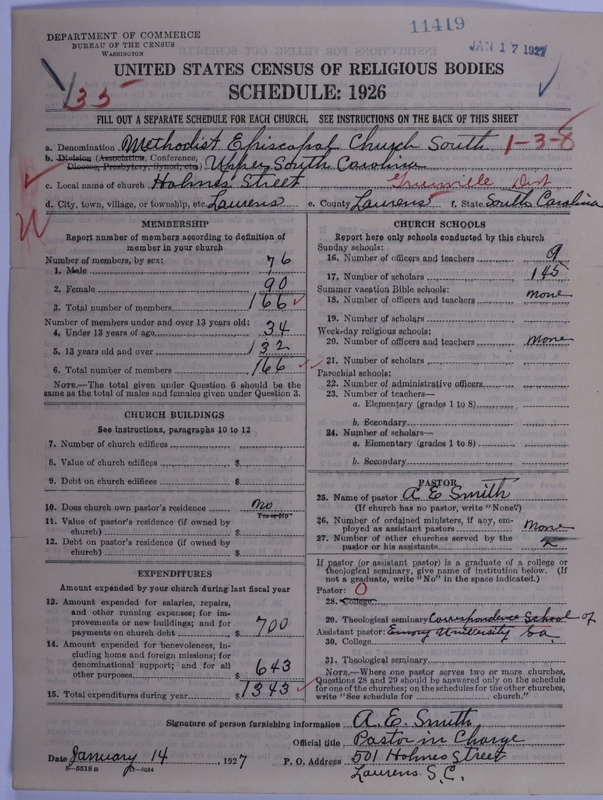 11419
DEPARTMENT OF COMMERCE
BUREAU OF THE CENSUS
WASHINGTON
JAN 17 1927
UNITED STATES CENSUS OF RELIGIOUS BODIES
SCHEDULE: 1926
FILL OUT A SEPARATE SCHEDULE FOR EACH CHURCH. SEE INSTRUCTIONS ON THE BACK OF THIS SHEET
a. Denomination Methodist Episcopal Church South 1-3-8
b. Division (Association, Conference,
Diocese, Presbytery, Synod, etc.) Upper South Carolina
c. Local name of church Holmes Street Greenville Dist
d. City, town, village, or township, etc. Laurens e. County Laurens f. State South Carolina
MEMBERSHIP
Report number of members according to definition of
member in your church
Number of members, by sex:
1. Male 76
2. Female 90
3. Total number of members 166
Number of members under and over 13 years old:
4. Under 13 years of age 34
5. 13 years old and over 132
6. Total number of members 166
NOTE.—The total given under Question 6 should be the
same as the total of males and females given under Question 3.
CHURCH BUILDINGS
See instructions, paragraphs 10 to 12
7. Number of church edifices
8. Value of church edifices $
9. Debt on church edifices $
10. Does church own pastor's residence no
Yes or No
11. Value of pastor's residence (if owned by
church) $
12. Debt on pastor's residence (if owned by
church) $
EXPENDITURES
Amount expended by your church during last fiscal year
13. Amount expended for salaries, repairs,
and other running expenses; for im-
provements or new buildings; and for
payments on church debt $ 700
14. Amount expended for benevolences, in-
cluding home and foreign missions; for
denominational support; and for all
other purposes $ 643
15. Total expenditures during year $ 1343
CHURCH SCHOOLS
Report here only schools conducted by this church
Sunday schools:
16. Number of officers and teachers 9
17. Number of scholars 145
Summer vacation Bible schools:
18. Number of officers and teachers none
19. Number of scholars
Week-day religious schools:
20. Number of officers and teachers none
21. Number of scholars
Parochial schools:
22. Number of administrative officers
23. Number of teachers—
a. Elementary (grades 1 to 8)
b. Secondary
24. Number of scholars—
a. Elementary (grades 1 to 8)
b. Secondary
PASTOR
25. Name of pastor A E Smith
(If church has no pastor, write "None")
26. Number of ordained ministers, if any, em-
ployed as assistant pastors None
27. Number of other churches served by the
pastor or his assistants 2
If pastor (or assistant pastor) is a graduate of a college or
theological seminary, give name of institution below. (If
not a graduate, write "No" in the space indicated.)
Pastor: 0
28. College
29. Theological seminary Correspondence School of
Assistant pastor: Emory University Ga.
30. College
31. Theological seminary
NOTE.—Where one pastor serves two or more churches,
Questions 28 and 29 should be answered only on the schedule
for one of the churches; on the schedules for the other churches,
write "See schedule for church."
Signature of person furnishing information A. E. Smith
Official title Pastor in Charge
Date January 14, 1927 P. O. Address 501 Holmes Street
Laurens S.C.